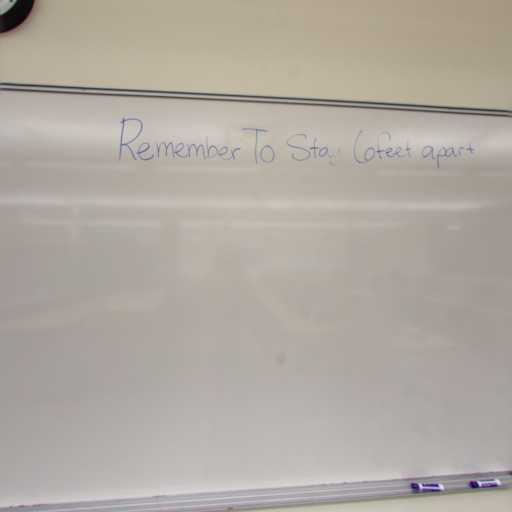 Remember To Stay 6feet apart